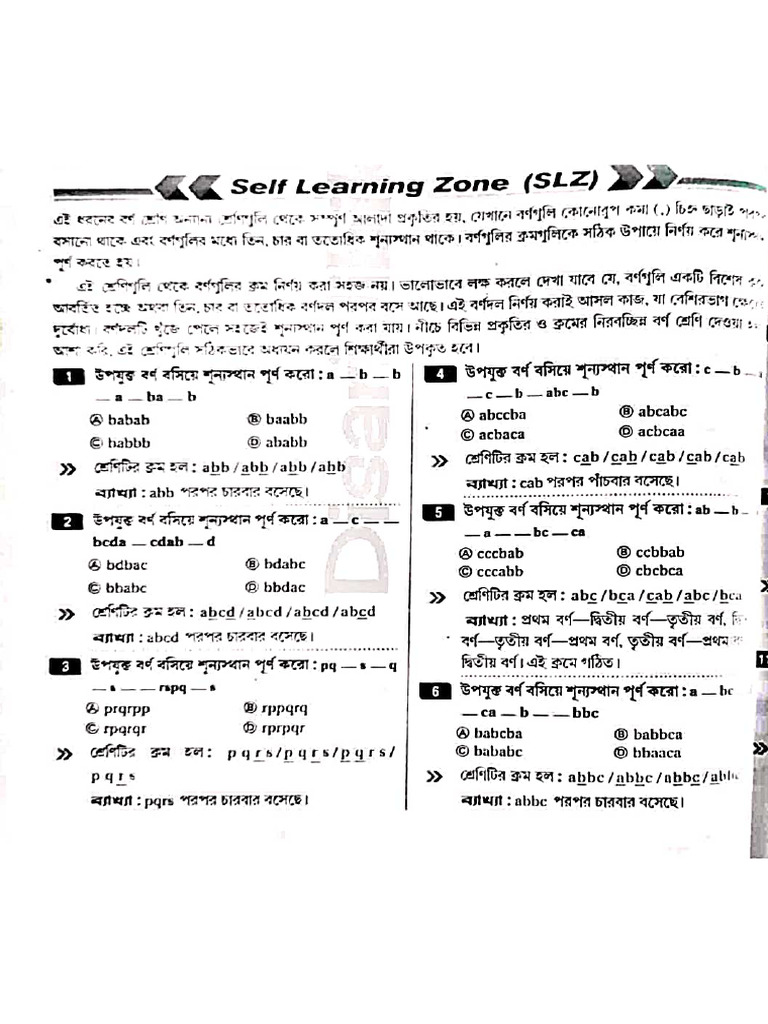 Self Learning Zone (SLZ)
এই ধরনের বর্ণ শ্রেণি অন্যান্য শ্রেণিগুলি থেকে সম্পূর্ণ আলাদা প্রকৃতির হয়, যেখানে বর্ণগুলি কোনোরূপ কমা (,) চিহ্ন ছাড়াই
বসানো থাকে এবং বর্ণগুলির মধ্যে তিন, চার বা ততোধিক শূন্যস্থান থাকে। বর্ণগুলির ক্রমগুলিকে সঠিক উপায়ে নির্ণয় করে
পূর্ণ করতে হয়।
এই শ্রেণিগুলি থেকে বর্ণগুলির ক্রম নির্ণয় করা সহজ নয়। ভালোভাবে লক্ষ করলে দেখা যাবে যে, বর্ণগুলি একটি বিশেষ
আবর্তিত হচ্ছে অথবা তিন, চার বা ততোধিক বর্ণদল পরপর বসে আছে। এই বর্ণদল নির্ণয় করাই আসল কাজ, যা বেশিরভাগ
দুর্বোধ্য। বর্ণদলটি খুঁজে পেলে সহজেই শূন্যস্থান পূর্ণ করা যায়। নীচে বিভিন্ন প্রকৃতির ও ক্রমের নিরবচ্ছিন্ন বর্ণ শ্রেণি দেওয়া
আশা করি, এই শ্রেণিগুলি সঠিকভাবে অধ্যয়ন করলে শিক্ষার্থীরা উপকৃত হবে।
1 উপযুক্ত বর্ণ বসিয়ে শূন্যস্থান পূর্ণ করো : a _ b _ b
_ a _ ba _ b
Ⓐ babab Ⓑ baabb
Ⓒ babbb Ⓓ ababb
» শ্রেণিটির ক্রম হল : abb / abb / abb / abb
ব্যাখ্যা : abb পরপর চারবার বসেছে।
2 উপযুক্ত বর্ণ বসিয়ে শূন্যস্থান পূর্ণ করো : a _ c _ _
bcda _ cdab _ d
Ⓐ bdbac Ⓑ bdabc
Ⓒ bbabc Ⓓ bbdac
» শ্রেণিটির ক্রম হল : abcd / abcd / abcd / abcd
ব্যাখ্যা : abcd পরপর চারবার বসেছে।
3 উপযুক্ত বর্ণ বসিয়ে শূন্যস্থান পূর্ণ করো : pq _ s _ q
_ s _ _ rspq _ s
Ⓐ prqrpp Ⓑ rppqrq
Ⓒ rpqrqr Ⓓ rprpqr
» শ্রেণিটির ক্রম হল : p q r s / p q r s / p q r s /
p q r s
ব্যাখ্যা : pqrs পরপর চারবার বসেছে।
4 উপযুক্ত বর্ণ বসিয়ে শূন্যস্থান পূর্ণ করো : c _ b _ a
_ c _ b _ abc _ b
Ⓐ abccba Ⓑ abcabc
Ⓒ acbaca Ⓓ acbcaa
» শ্রেণিটির ক্রম হল : cab / cab / cab / cab / cab
ব্যাখ্যা : cab পরপর পাঁচবার বসেছে।
5 উপযুক্ত বর্ণ বসিয়ে শূন্যস্থান পূর্ণ করো : ab _ b _
_ a _ _ bc _ ca
Ⓐ cccbab Ⓑ ccbbab
Ⓒ cccabb Ⓓ cbcbca
» শ্রেণিটির ক্রম হল : abc / bca / cab / abc / bca
ব্যাখ্যা : প্রথম বর্ণ—দ্বিতীয় বর্ণ—তৃতীয় বর্ণ,
বর্ণ—তৃতীয় বর্ণ—প্রথম বর্ণ, তৃতীয় বর্ণ—প্রথম
দ্বিতীয় বর্ণ। এই ক্রমে গঠিত।
6 উপযুক্ত বর্ণ বসিয়ে শূন্যস্থান পূর্ণ করো : a _ bc
_ ca _ b _ _ bbc
Ⓐ babcba Ⓑ babbca
Ⓒ bababc Ⓓ bbaaca
» শ্রেণিটির ক্রম হল : abbc / abbc / abbc / abbc
ব্যাখ্যা : abbc পরপর চারবার বসেছে।